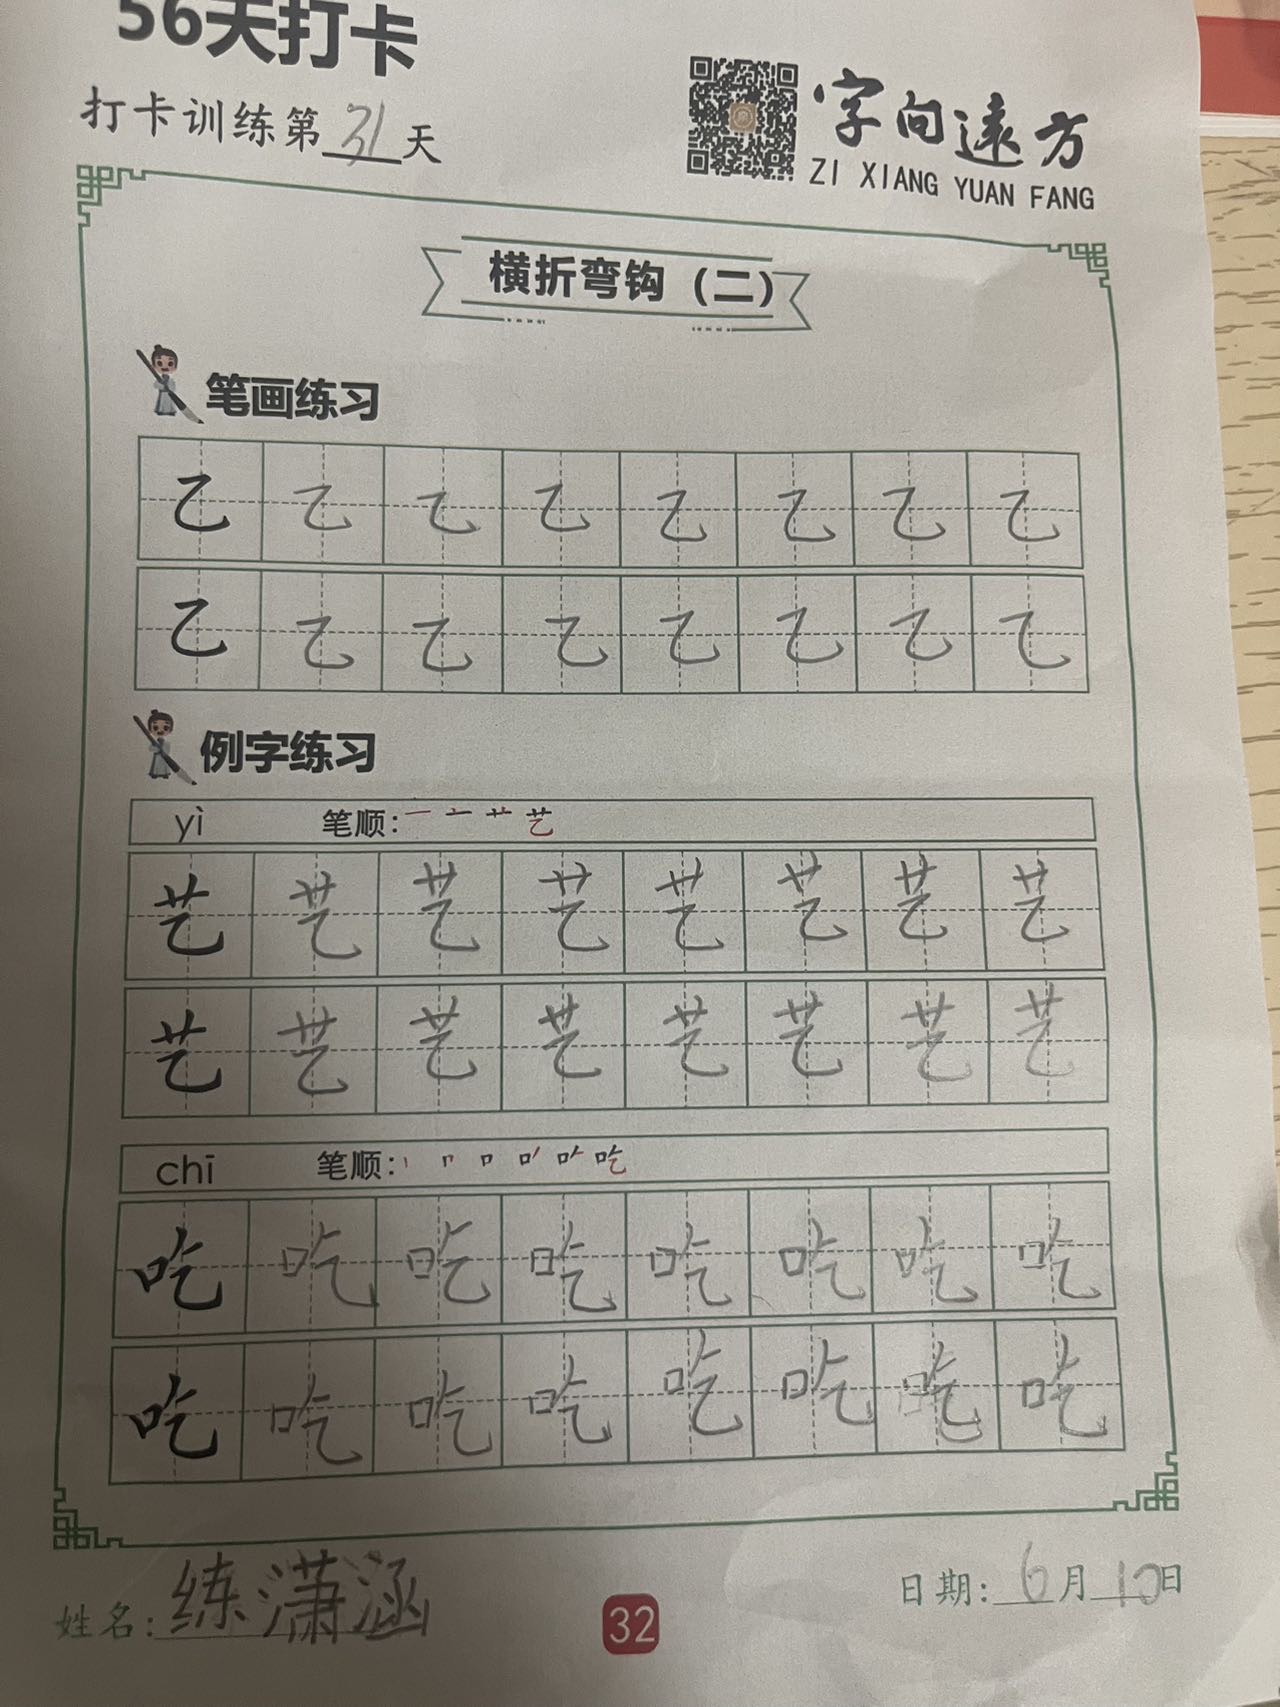 56天打卡
打卡训练第31天
字向远方
ZI XIANG YUAN FANG
横折弯钩（二）
笔画练习
乙 乙 乙 乙 乙 乙 乙 乙
乙 乙 乙 乙 乙 乙 乙 乙
例字练习
yì 笔顺: 一 十 艹 艺
艺 艺 艺 艺 艺 艺 艺 艺
艺 艺 艺 艺 艺 艺 艺 艺
chī 笔顺: 丨 冂 口 吖 吃
吃 吃 吃 吃 吃 吃 吃 吃
吃 吃 吃 吃 吃 吃 吃 吃
姓名: 练潇涵
32
日期: 6月10日